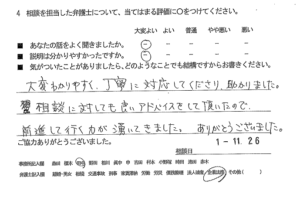 4 相談を担当した弁護士について、当てはまる評価に○をつけてください。
大変よい よい 普通 やや悪い 悪い
■ あなたの話をよく聞きましたか。
■ 説明は分かりやすかったですか。
■ 気がついたことがありましたら、どのようなことでも結構ですからお書きください。
大変わかりやすく、丁寧に対応してくださり、助かりました。
相談に対しても良いアドバイスをして頂いたので、
前進して行く力が湧いてきました。ありがとうございました。
ご協力ありがとうございました。
相談日
1-11.26
事務所記入欄
弁護士記入欄 交通事故 刑事 労働 企業法務 その他(